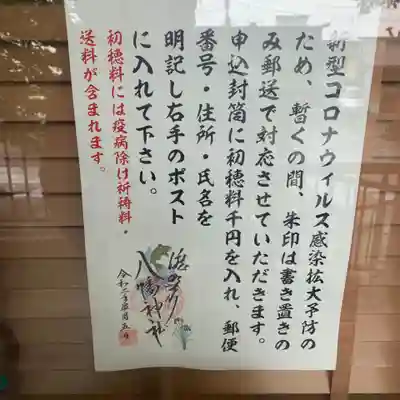 新型コロナウィルス感染拡大予防の
ため、暫くの間、朱印は書き置きの
み郵送で対応させていただきます。
申込封筒に初穂料千円を入れ、郵便
番号・住所・氏名を
明記し右手のポスト
に入れて下さい。
初穂料には疫病除け祈祷料・
送料が含まれます。
八幡神社